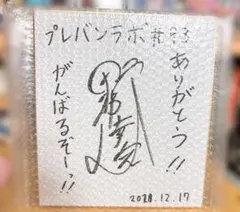 プレバンラボ#83
ありがとう!!
がんばるぞーっ!!
2020.12.17